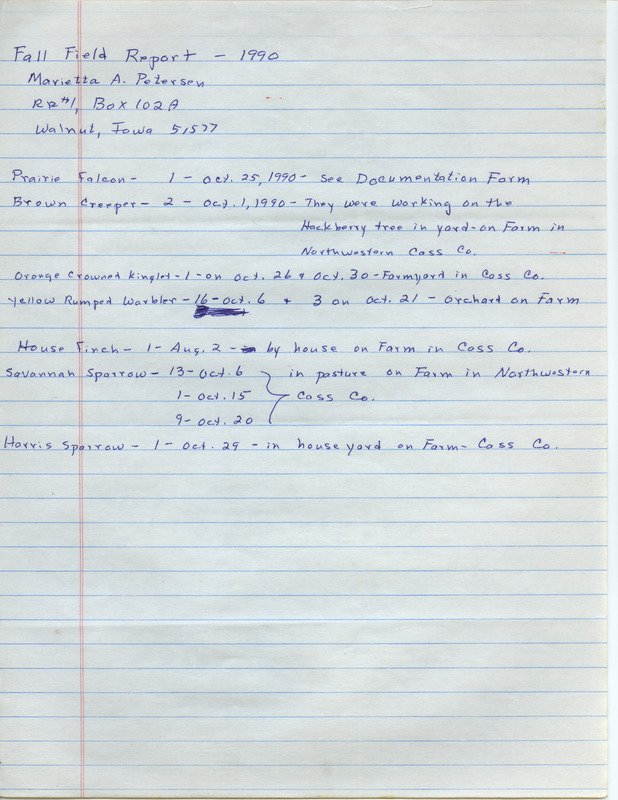 Fall Field Report - 1990
Marietta A. Petersen
RR#1, Box 102A
Walnut, Iowa 51577
Prairie Falcon - 1 - Oct. 25, 1990 - See Documentation Form
Brown Creeper - 2 - Oct. 1, 1990 - They were working on the
Hackberry tree in yard - on Farm in
Northwestern Cass Co.
Orange Crowned Kinglet - 1 - on Oct. 26 & Oct. 30 - Farmyard in Cass Co.
Yellow Rumped Warbler - 16 - Oct. 6 & 3 on Oct. 21 - Orchard on Farm
House Finch - 1 - Aug. 2 - by house on Farm in Cass Co.
Savannah Sparrow - 13 - Oct. 6 in pasture on Farm in Northwestern
1 - Oct. 15 Cass Co.
9 - Oct. 20
Harris Sparrow - 1 - Oct. 29 - in house yard on Farm - Cass Co.